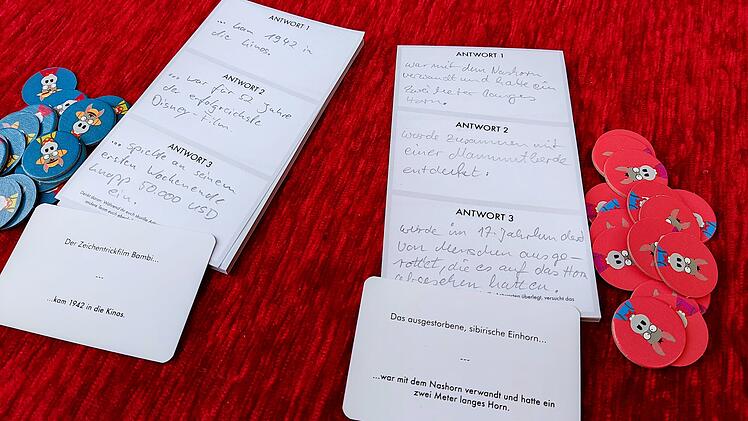 ANTWORT 1
... kam 1942 in
die Kinos.
ANTWORT 2
... war für 52 Jahre
der erfolgreichste
Disney-Film.
ANTWORT 3
... spielte an seinem
ersten Wochenende
knapp 50.000 USD
ein.
Der Zeichentrickfilm Bambi...
---
...kam 1942 in die Kinos.
ANTWORT 1
war mit dem Nashorn
verwandt und hatte ein
zwei Meter langes
Horn.
ANTWORT 2
wurde zusammen mit
einer Mammutherde
entdeckt.
ANTWORT 3
wurde im 17. Jahrhundert
von Menschen ausge-
rottet, die es auf das Horn
abgesehen hatten.
überlegt, versucht das
Das ausgestorbene, sibirische Einhorn...
---
...war mit dem Nashorn verwandt und hatte ein
zwei Meter langes Horn.